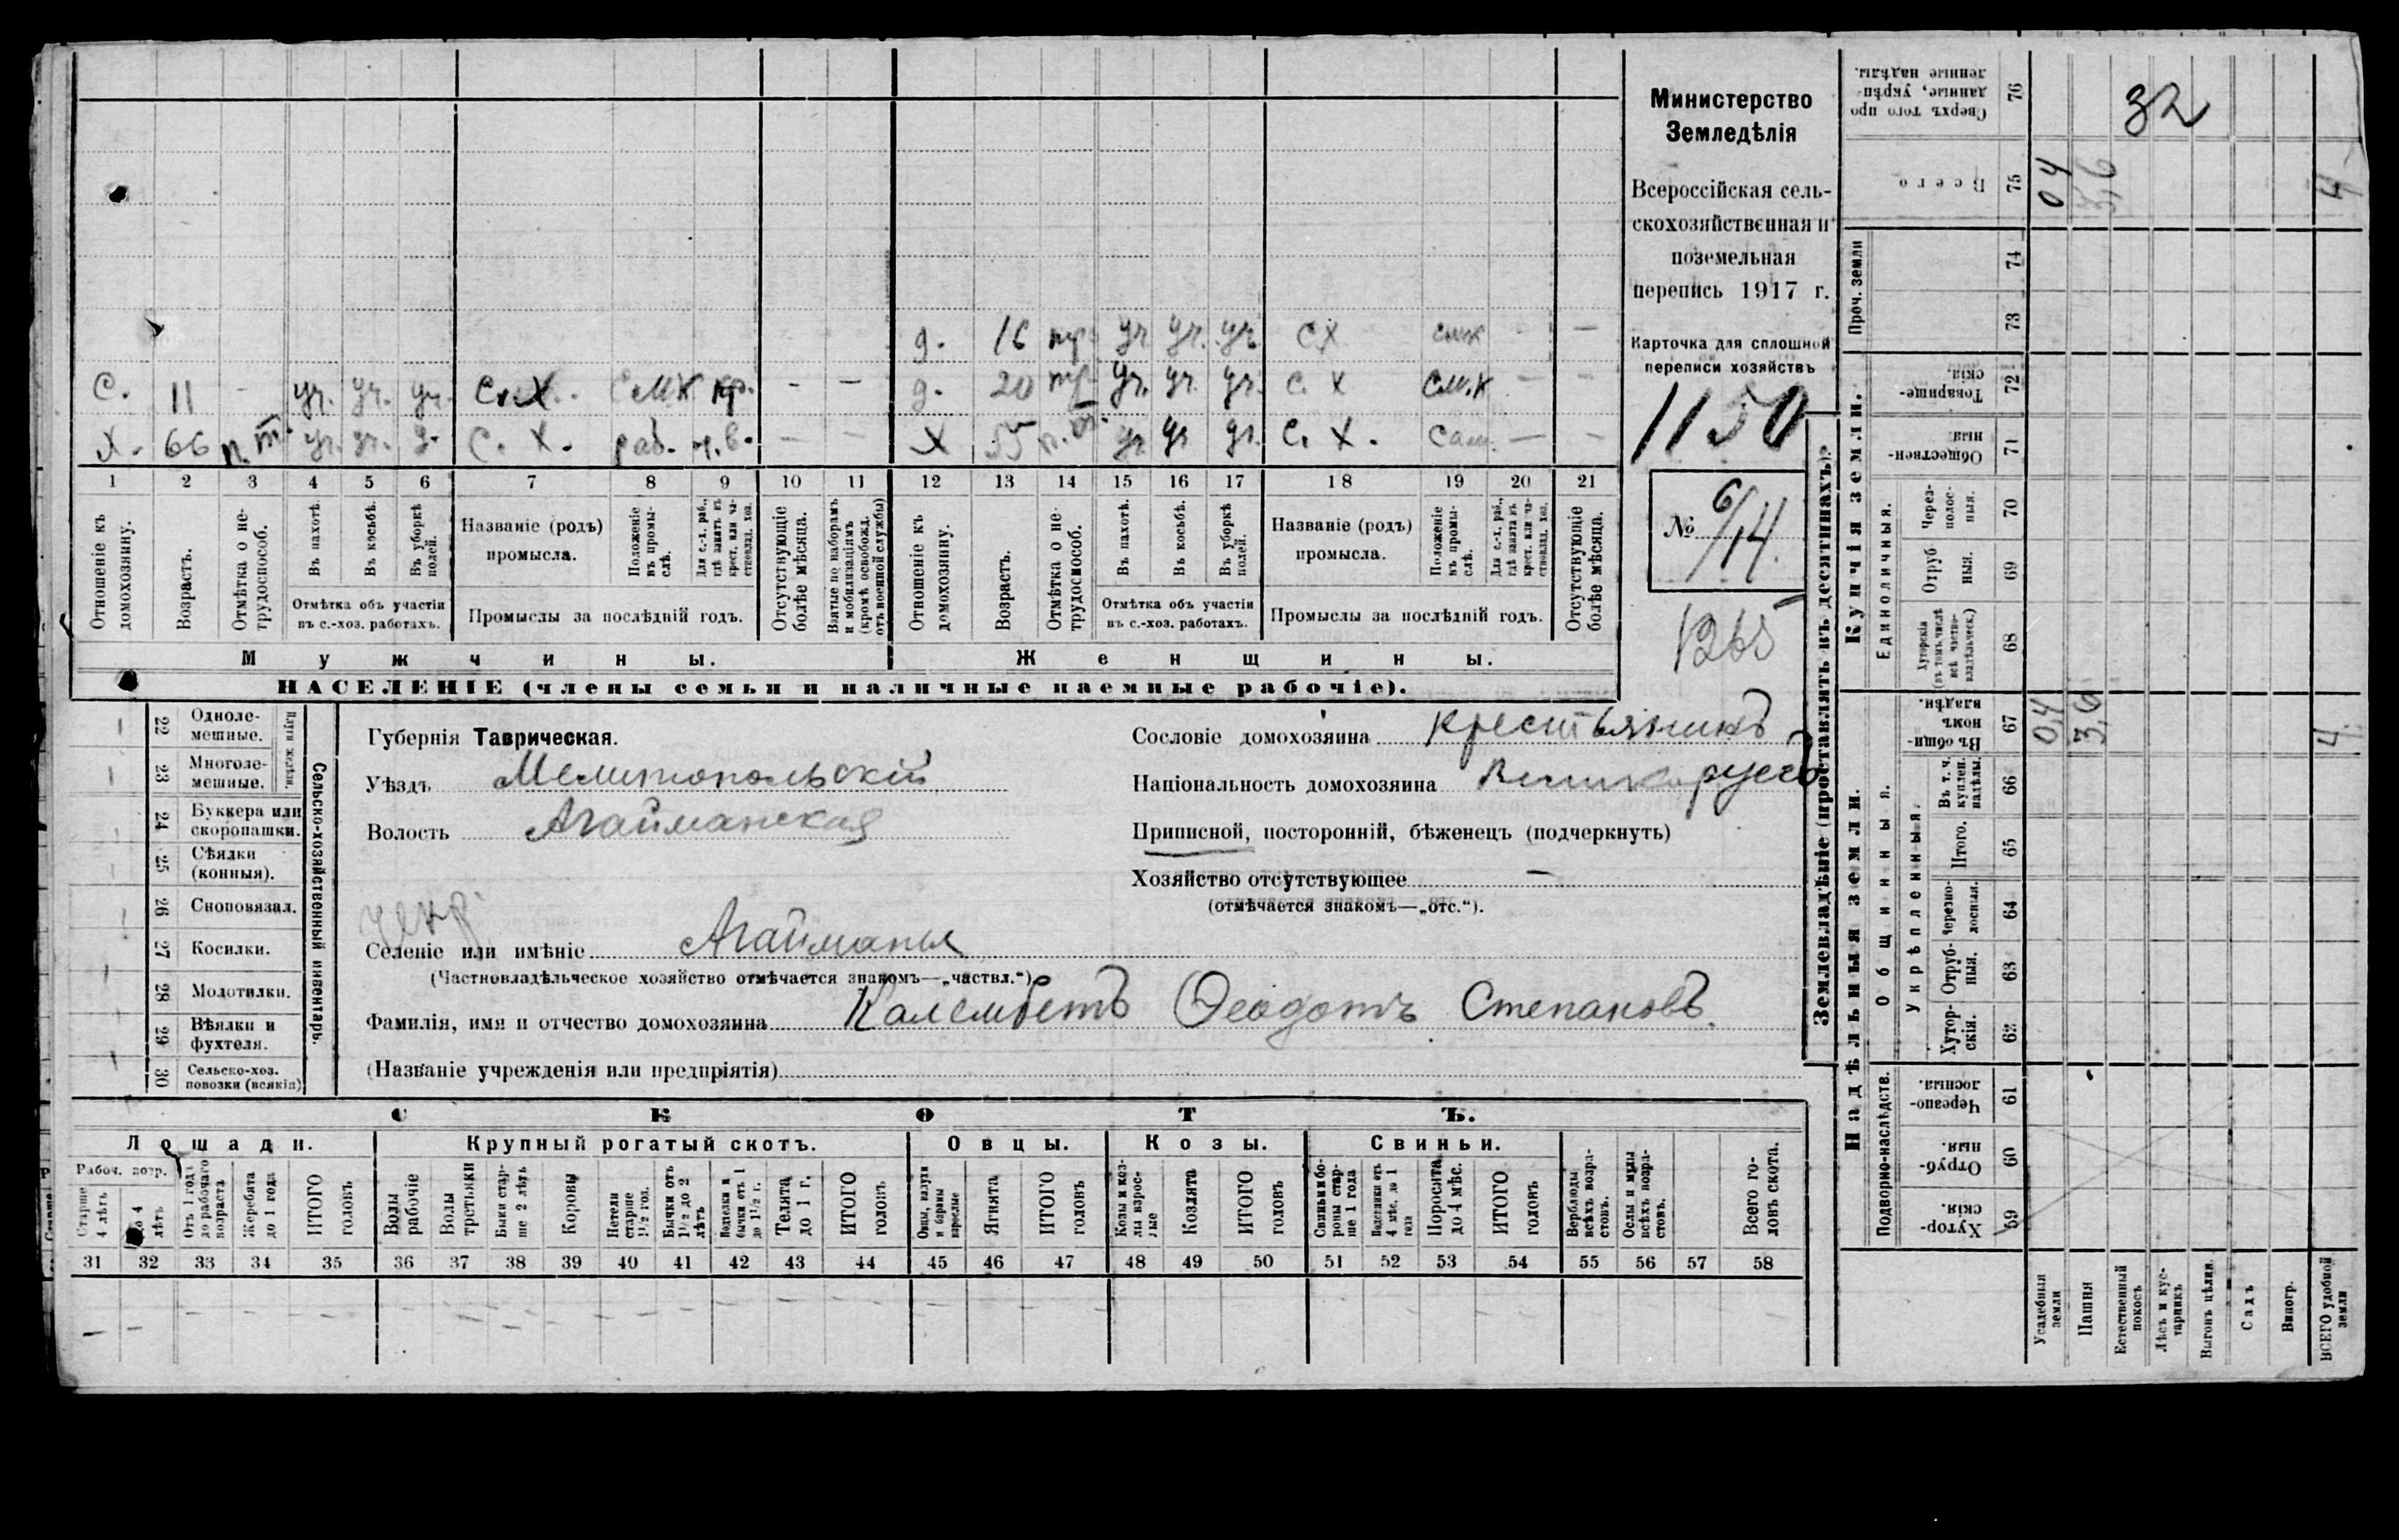 д. 16 пр. уч. уч. уч. с х смж — —
С. 11 - уч. уч. уч. С. Х. СМЖ кр. - - д. 20 уч. уч. уч. с. х см.ж — —
Х. 66 п. т. уч. уч. у. С. Х. раб. ч.в. — — Х 55 п. т. уч уч уч. С. Х. сам. — —
1 2 3 4 5 6 7 8 9 10 11 12 13 14 15 16 17 18 19 20 21
Отношеніе къ домохозяину.
Возрастъ.
Отмѣтка о не-трудоспособ.
Въ пахотѣ.
Въ косьбѣ.
Въ уборкѣ полей.
Отмѣтка объ участіи
въ с.-хоз. работахъ.
Названіе (родъ)
промысла.
Положеніе въ промы-слѣ.
Для с.-х. раб., гдѣ занятъ въ крест. или ча-стновлад. хоз.
Промыслы за послѣдній годъ.
Отсутствующіе болѣе мѣсяца.
Взятые по наборамъ и мобилизаціямъ (кромѣ освобожд. отъ военной службы)
Отношеніе къ домохозяину.
Возрастъ.
Отмѣтка о не-трудоспособ.
Въ пахотѣ.
Въ косьбѣ.
Въ уборкѣ полей.
Отмѣтка объ участіи
въ с.-хоз. работахъ.
Названіе (родъ)
промысла.
Положеніе въ промы-слѣ.
Для с.-х. раб., гдѣ занята въ крест. или ча-стновлад. хоз.
Промыслы за послѣдній годъ.
Отсутствующіе болѣе мѣсяца.
Мужчины. Женщины.
НАСЕЛЕНІЕ (члены семьи и наличные наемные рабочіе).
Министерство
Земледѣлія
Всероссійская сель-
скохозяйственная и
поземельная
перепись 1917 г.
Карточка для сплошной
переписи хозяйствъ
1150
№ 6/14.
1265
22 Одноле-мешные.
23 Многоле-мешные.
Плуги желѣзн.
24 Буккера или скоропашки.
25 Сѣялки (конныя).
26 Сноповязал.
27 Косилки.
28 Молотилки.
29 Вѣялки и фухтеля.
30 Сельско-хоз. повозки (всякія)
Сельско-хозяйственный инвентарь.
Губернія Таврическая.
Уѣздъ Мелитопольскій
Волость Агайманская
Селеніе или имѣніе Агайманы
(Частновладѣльческое хозяйство отмѣчается знакомъ—„частвл.“)
Фамилія, имя и отчество домохозяина Калембетъ Ѳеодотъ Степановъ.
(Названіе учрежденія или предпріятія)
Сословіе домохозяина крестьянинъ
Національность домохозяина Великоруссъ
Приписной, посторонній, бѣженецъ (подчеркнуть)
Хозяйство отсутствующее —
(отмѣчается знакомъ—„отс.“).
СКОТЪ.
Лошади. Крупный рогатый скотъ. Овцы. Козы. Свиньи.
Рабоч. возр.
Старше 4 лѣтъ
До 4 лѣтъ
Отъ 1 года до рабочаго возраста
Жеребята до 1 года
ИТОГО головъ
Волы рабочіе
Волы третьяки
Быки стар-ше 2 лѣтъ
Коровы
Нетели старше 1½ год.
Бычки отъ 1½ до 2 лѣтъ
Подтелки и бычки отъ 1 до 1½ г.
Телята до 1 г.
ИТОГО головъ
Овцы, валухи и бараны взрослые
Ягнята
ИТОГО головъ
Козы и коз-лы взрос-лые
Козлята
ИТОГО головъ
Свиньи и бо-ровы стар-ше 1 года
Подсвинки отъ 4 мѣс. до 1 года
Поросята до 4 мѣс.
ИТОГО головъ
Верблюды всѣхъ возра-стовъ.
Ослы и мулы всѣхъ возра-стовъ.
Всего го-ловъ скота.
31 32 33 34 35 36 37 38 39 40 41 42 43 44 45 46 47 48 49 50 51 52 53 54 55 56 57 58
Землевладѣніе (проставлять въ десятинахъ).
Надѣльныя земли.
Купчія земли.
Проч. земли
Подворно-наслѣдств.
Общинныя.
Укрѣпленныя.
Единоличныя.
Сверхъ того про данные, укрѣп-ленные надѣлы. 76 32
Всего 75 04 3,6 4
74
73
Товарище-скія. 72
Обществен-ныя. 71
Через-полос-ныя. 70
Отруб ныя. 69
Хуторскія (въ томъ числѣ всѣ частно-владѣльческ.) 68
Въ общин-номъ владѣн. 67 04 3,6 4
Въ т. ч. куплен. надѣлы. 66
Итого. 65
Черезпо-лосныя. 64
Отруб-ныя. 63
Хутор-скія. 62
Черезпо-лосныя. 61
Отруб-ныя. 60
Хутор-скія. 59
Усадебныя земли
Пашня
Естественный покосъ
Лѣсъ и кус-тарникъ
Выгонъ цѣлин.
Садъ
Виногр.
ВСЕГО удобной земли